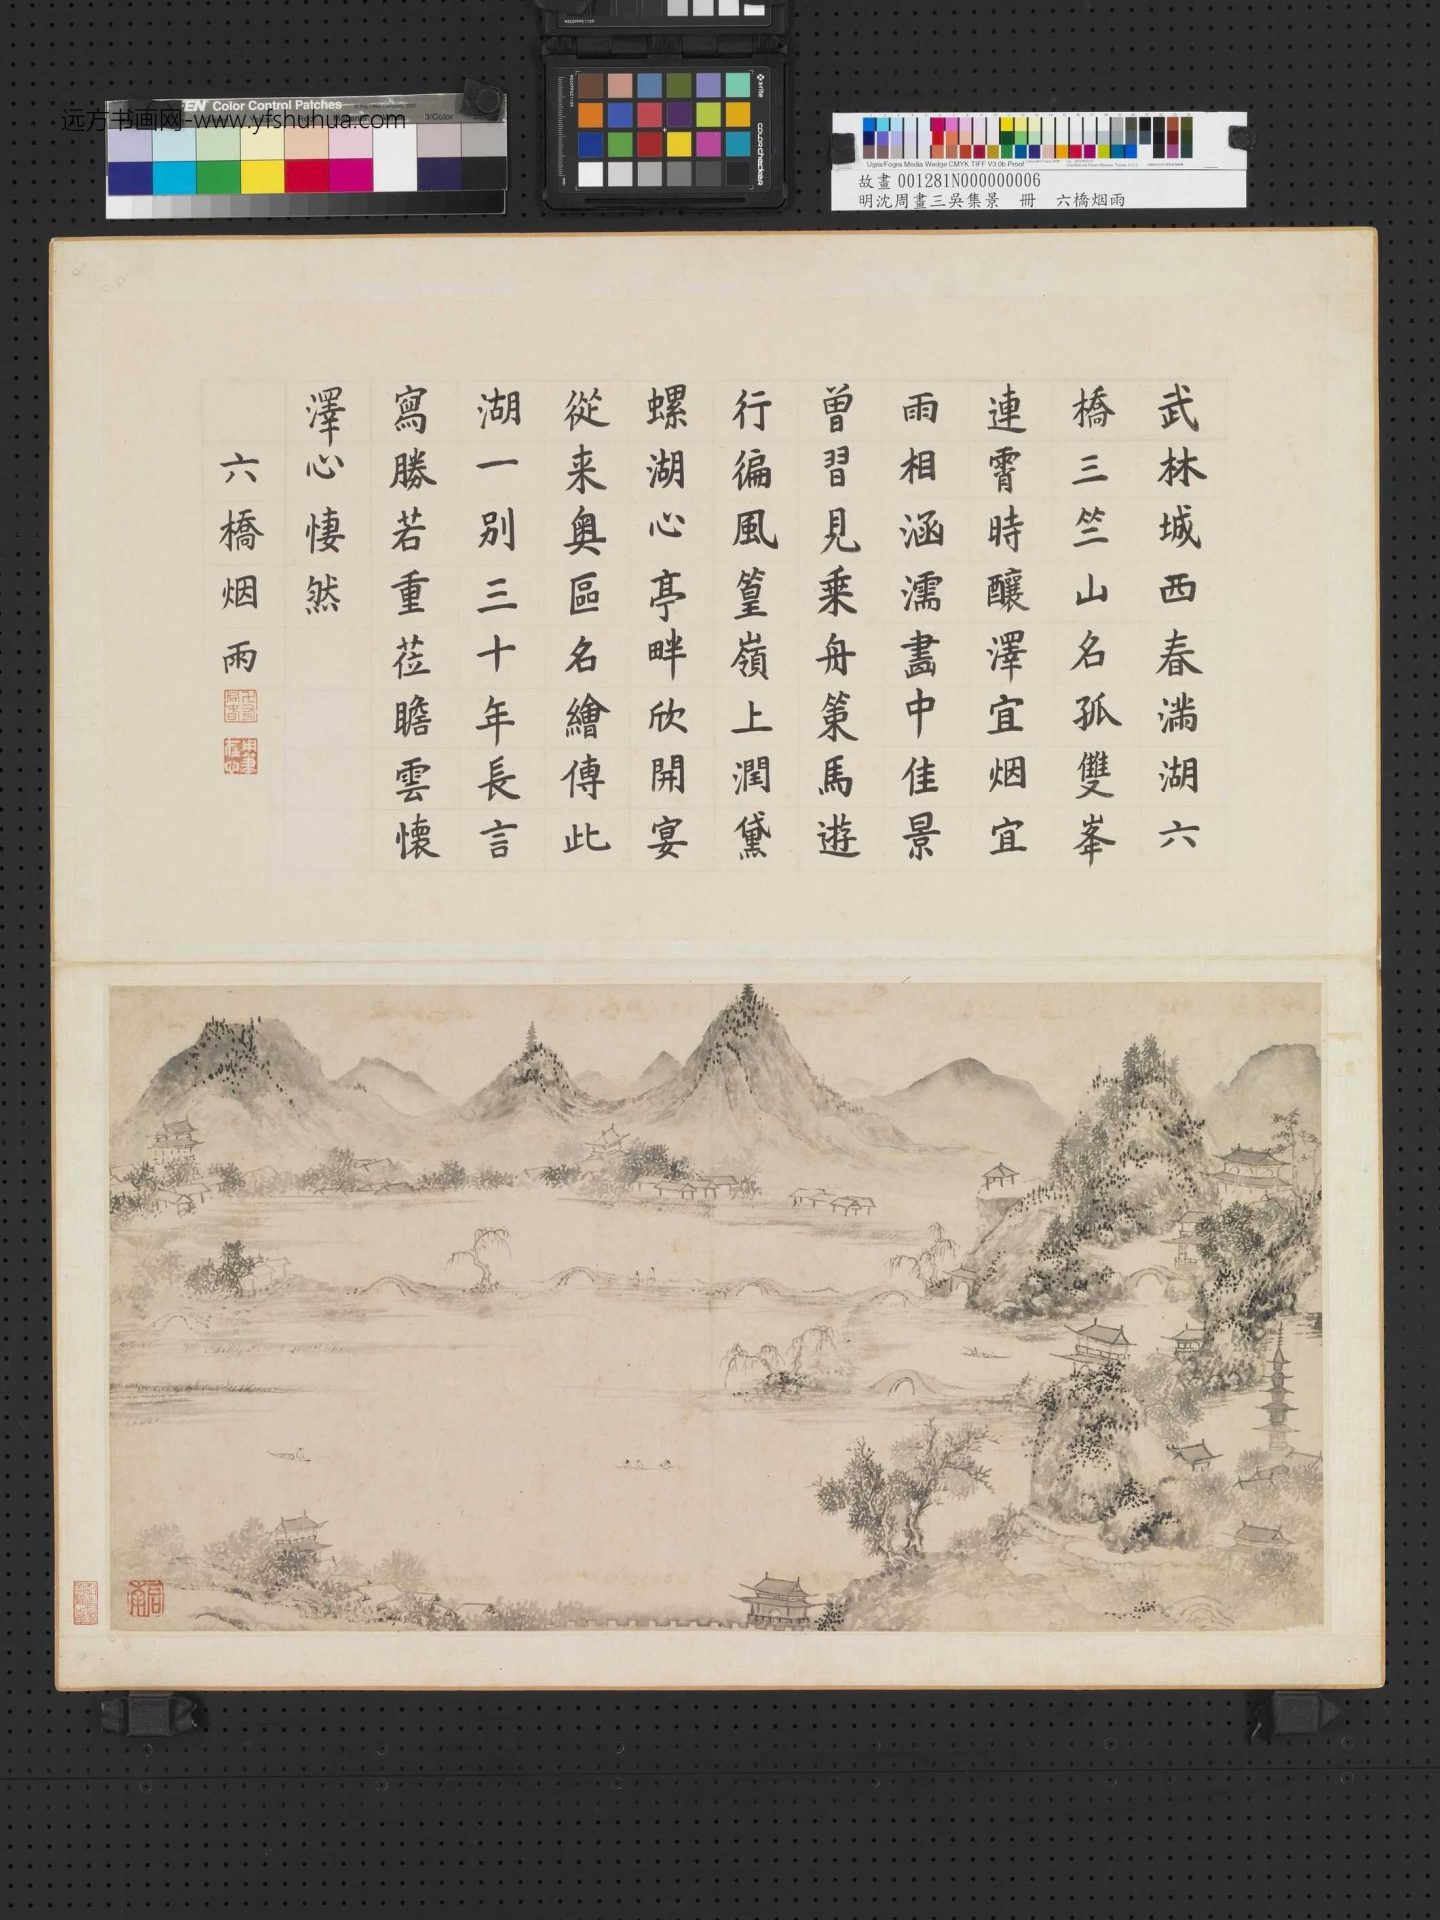 远方书画网-www.yfshuhua.com
Color Control Patches
3/Color
x-rite
colorchecker
Ugra/Fogra Media Wedge CMYK TIFF V3.0b Proof
故畫 001281N000000006
明沈周畫三吳集景 冊 六橋烟雨
武林城西春滿湖六
橋三竺山名孤雙峯
連霄時釀澤宜烟宜
雨相涵濡畵中佳景
曾習見乗舟策馬遊
行徧風篁嶺上潤黛
螺湖心亭畔欣開宴
從来奥區名繪傳此
湖一别三十年長言
寫勝若重莅瞻雲懷
澤心悽然
六橋烟雨